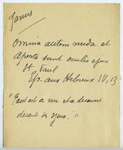 James
Omnia autem nuda et
aperta sunt oculis ejus
St Paul
Ep. aux Hebreux IV, 13
"Tout est à nu et à découvert
devant ses yeux."